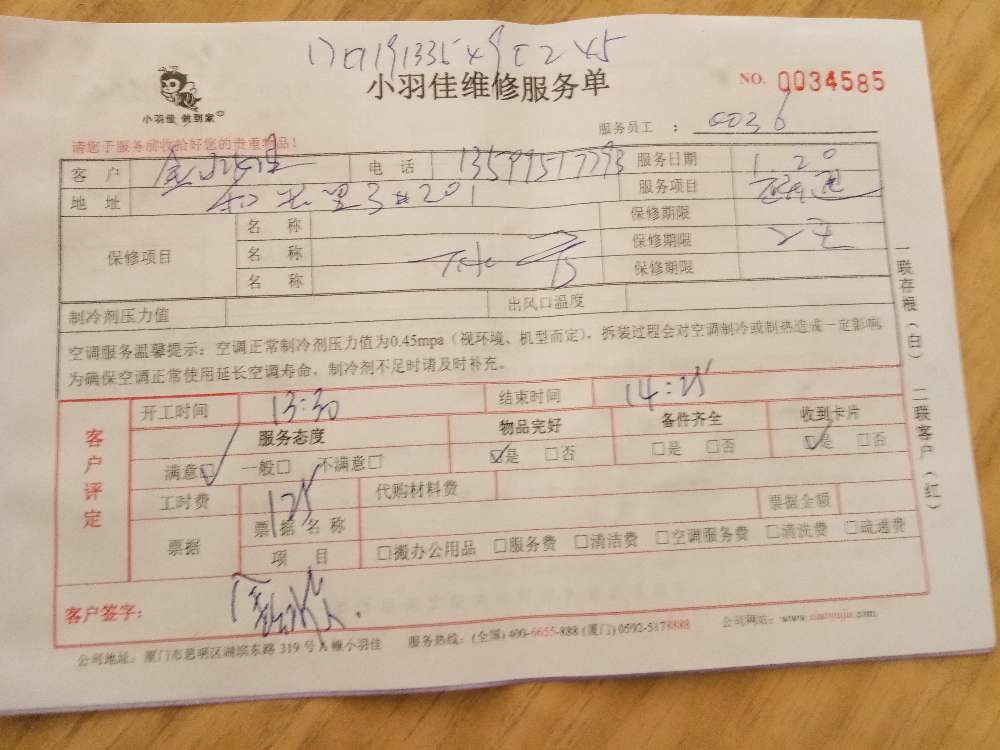 小羽佳 做到家
小羽佳维修服务单
NO. 0034585
服务员工 : 0036
请您于服务前收拾好您的贵重物品!
客 户 电 话 13599517793 服务日期 1 20
地 址 201 服务项目
保修项目 名 称 保修期限
名 称 保修期限
名 称 保修期限
制冷剂压力值 出风口温度
空调服务温馨提示: 空调正常制冷剂压力值为0.45mpa (视环境、机型而定), 拆装过程会对空调制冷或制热造成一定影响
为确保空调正常使用延长空调寿命, 制冷剂不足时请及时补充。
客户评定
开工时间 13:30 结束时间 14:25
服务态度 物品完好 备件齐全 收到卡片
满意☑ 一般□ 不满意□ ☑是 □否 □是 □否 ☑是 □否
工时费 125 代购材料费
票据 票据名称 票据金额
项 目 □搬办公用品 □服务费 □清洁费 □空调服务费 □清洗费 □疏通费
客户签字:
公司地址: 厦门市思明区湖滨东路 319 号 小羽佳 服务热线: (全国) 400-6655-888 (厦门) 0592-5178888 公司网站: www.xiaoyujia.com
一联存根(白) 二联客户(红)